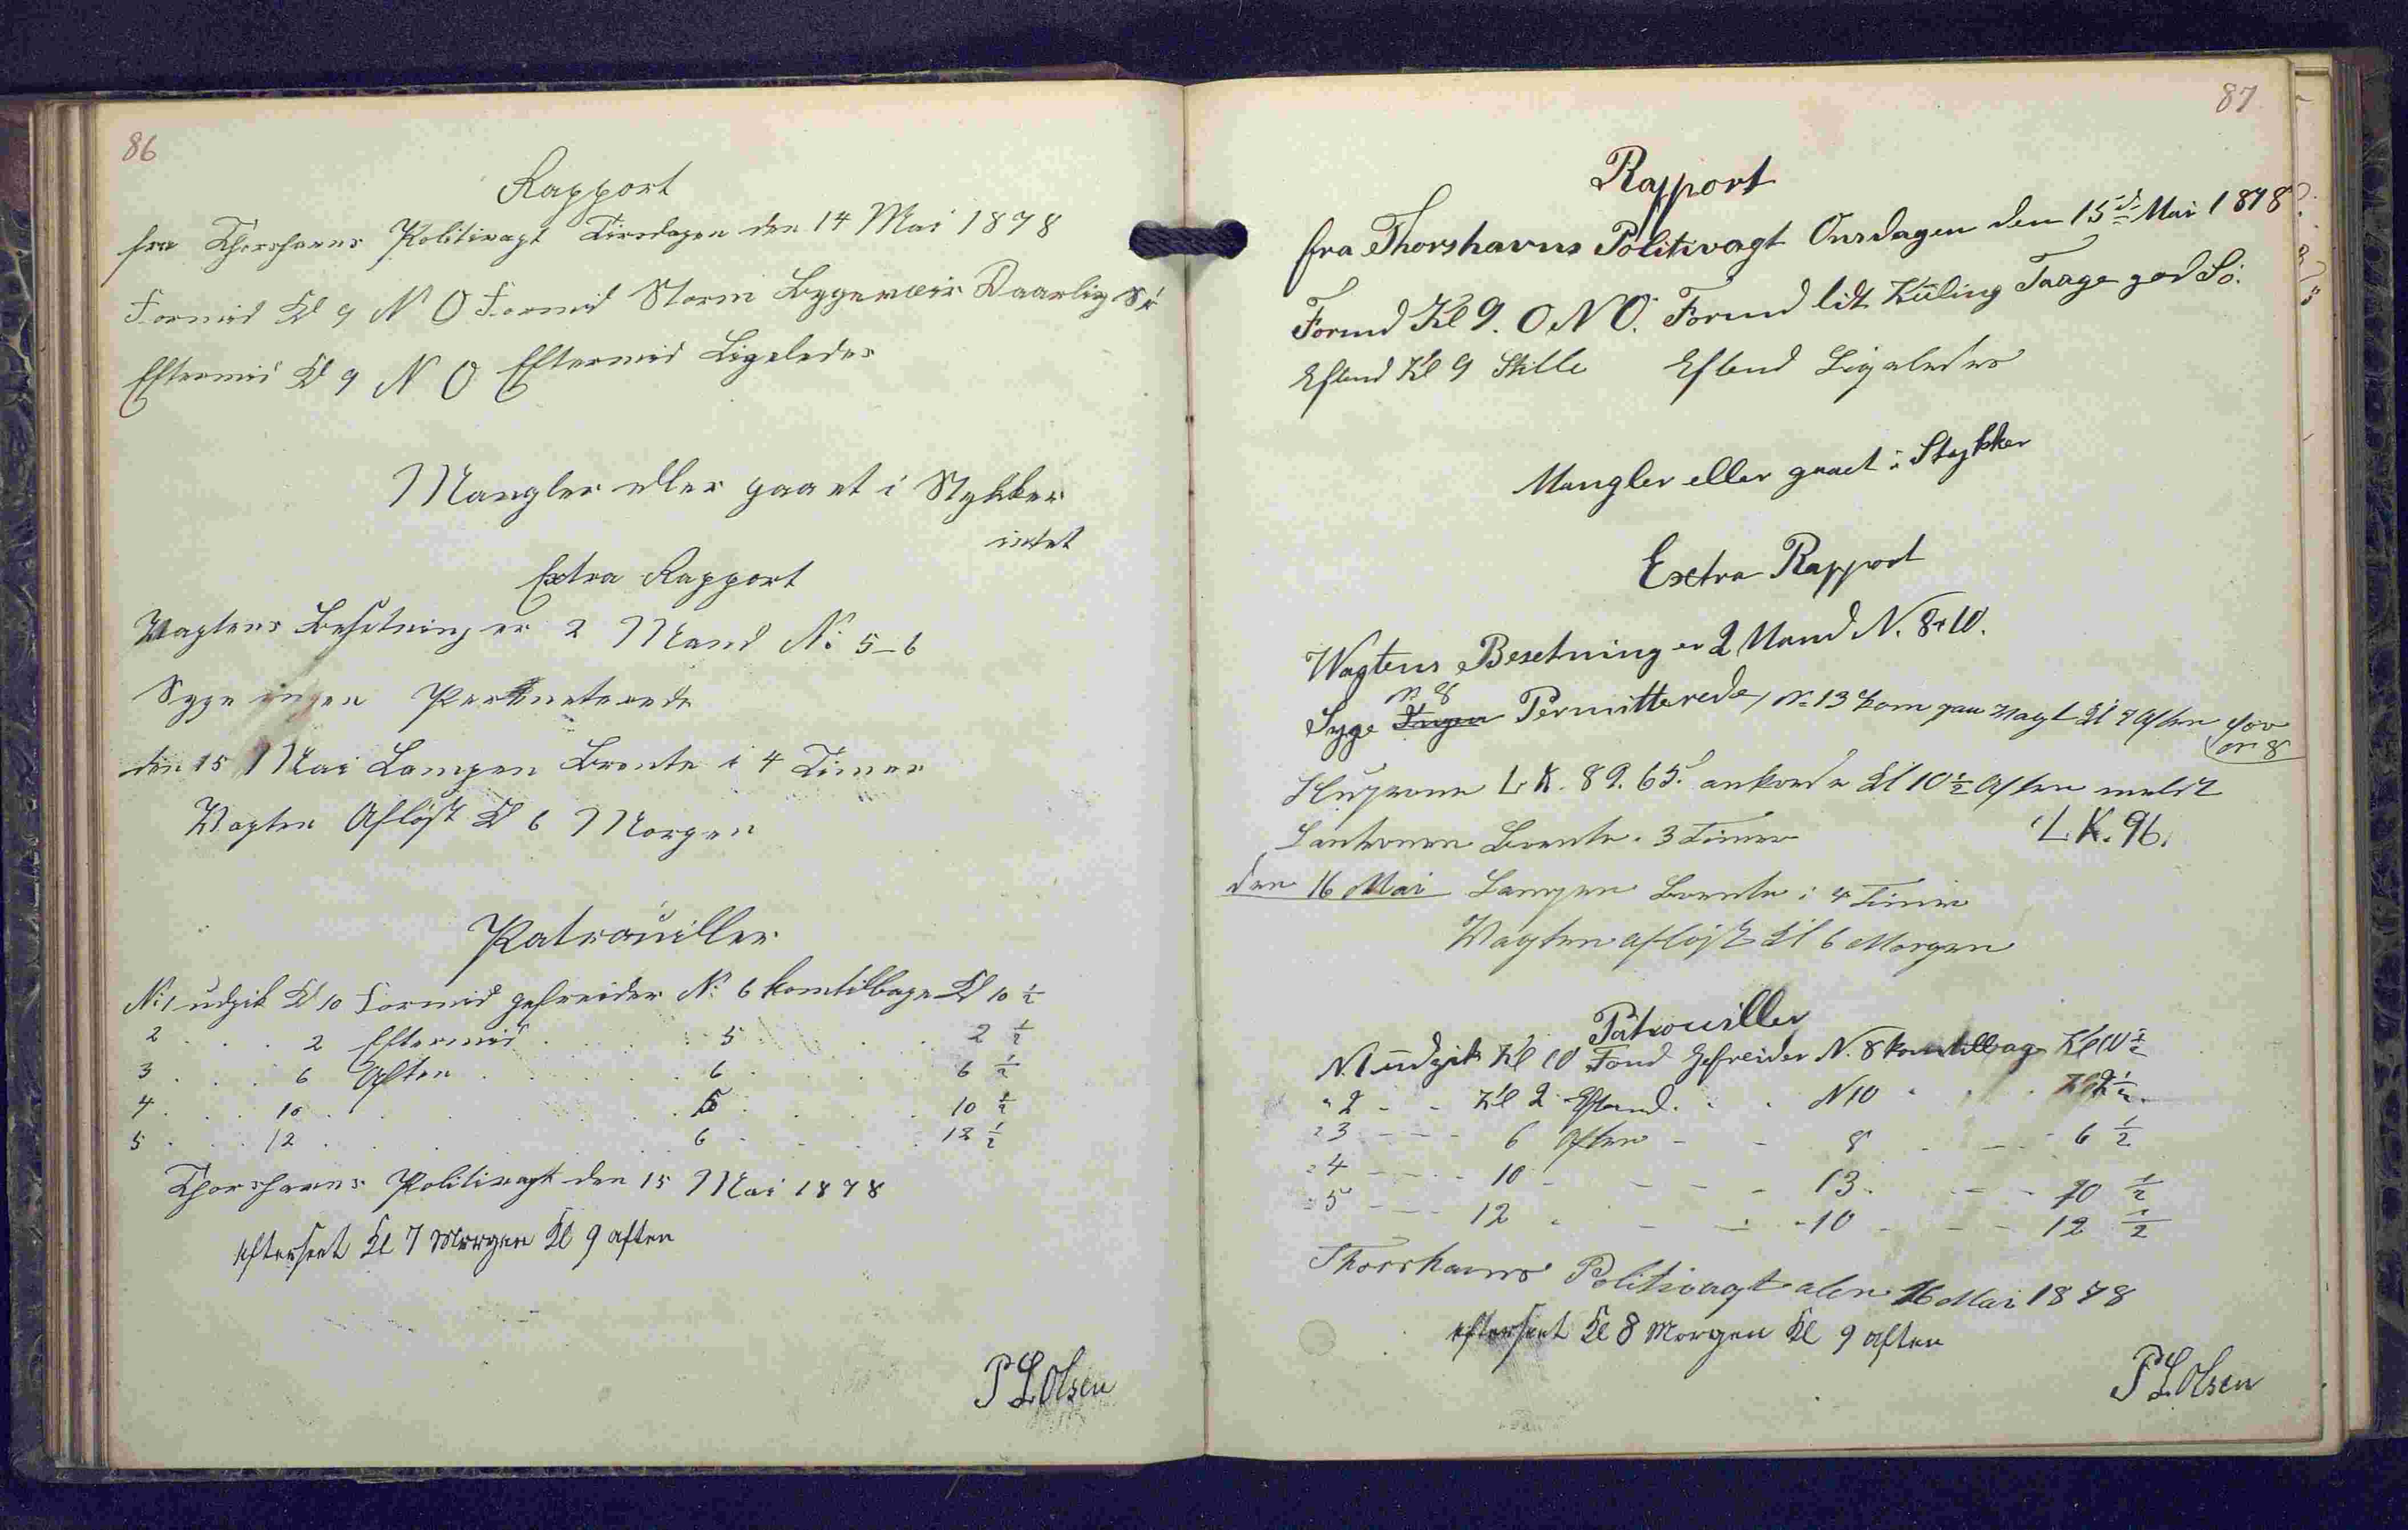 86
Rapport
fra Thorshavns Politivagt Tirsdagen den 14 Mai 1878
Formid Kl 9 N O Formid Storm Bygeveir Daarlig Sö
Eftermid Kl 9 N O Eftermid Ligeledes
Mangler eller gaaet i Stykker
intet
Extra Rapport
Vagtens Besetning er 2 Mand No 5-6
Syge ingen
den 15 Mai Lampen Brente i 4 Timer
Vagten Aflöst Kl 6 Morgen
Patrouiller
No 1 udgik Kl 10 Formid gefreider No 6 kom tilbage Kl 10 ½
2 . . . 2 Eftermid . . . 5 . . . 2 ½
3 . . . 6 Aften . . . 6 . . . 6 ½
4 . . . 10 . . . 5 . . . 10 ½
5 . . . 12 . . . 6 . . . 12 ½
Thorshavns Politivagt den 15 Mai 1878
efterseet Kl 7 Morgen Kl 9 aften
P L Olsen
87
Rapport
fra Thorshavns Politivagt Onsdagen den 15de Mai 1878
Formd Kl 9. O N O. Formd lidt Küling Taage god Sö.
Eftmd Kl 9 Stille Eftmd Ligeledes
Mangler eller gaaet i Stykker
Extra Rapport
Wagtens Besetning er 2 Mand N. 8 & 10.
N. 8
Syge Ingen Permitterede, No 13 kom paa Vagt Kl 9 Aften for
No 8
L K. 89. 65. ankrede Kl 10 ½ Aften meldt
Lanternen Brente. 3 Timer L K. 96.
den 16 Mai Lampen Brente i 4 Timer
Wagten aflöst Kl 6 Morgen
Patrouiller
N. 1 udgik Kl 10 Fomd Gefreider N. 8 kom tilbage Kl 10 ½
" 2 - - Kl 2 Eftmd. . . N 10 . . . Kl 2 ½.
" 3 - - - 6 Aften - - 8 - - - 6 ½
" 4 - - - 10 - - - 13 - - - 10 ½
" 5 - - - 12 - - - 10 - - - 12 ½
Thorshavns Politivagt den 16 Mai 1878
efterseet Kl 8 Morgen Kl 9 aften
P L Olsen